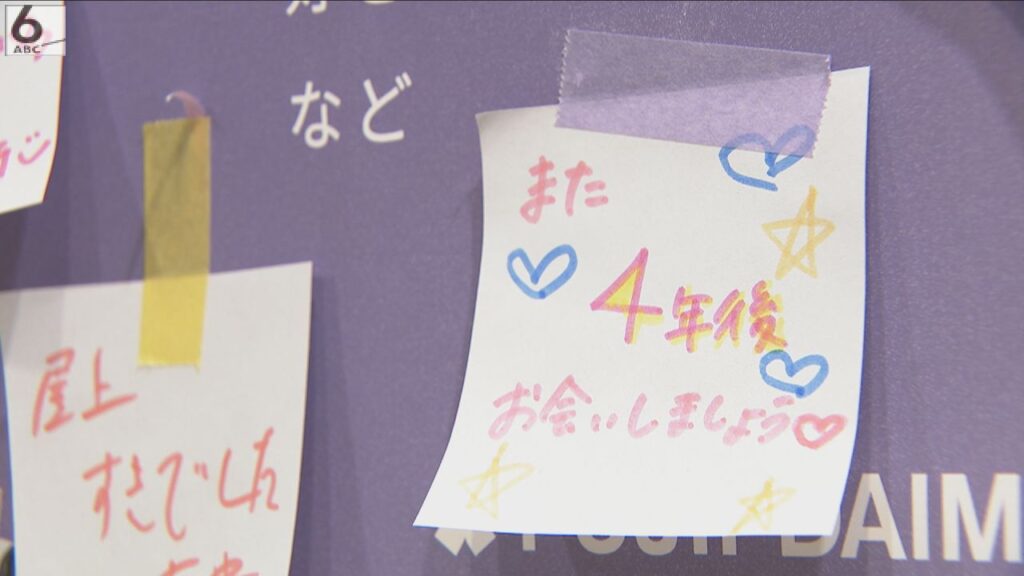 6
ABC
など
また
4年後
お会いしましょう
屋上
すきでした
DAIM